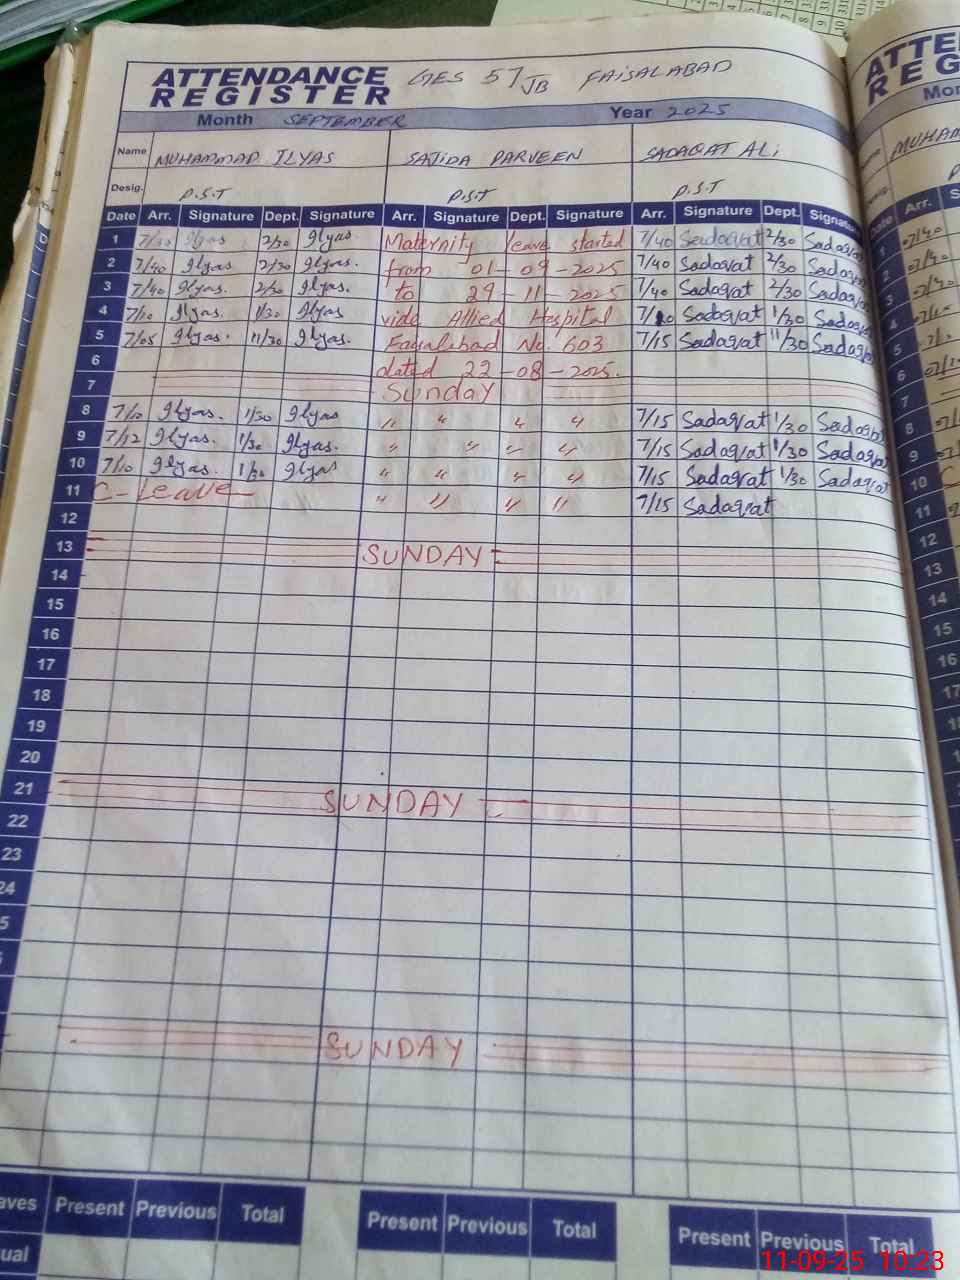 ATTENDANCE REGISTER GES 57 JB FAISALABAD
Month SEPTEMBER Year 2025
Name MUHAMMAD ILYAS SAJIDA PARVEEN SADAQAT ALi
Desig. P.S.T P.S.T P.S.T
Date Arr. Signature Dept. Signature Arr. Signature Dept. Signature Arr. Signature Dept. Signature
1 7/30 Ilyas 2/30 Ilyas. Maternity leave started 7/40 Sadaqat 2/30 Sadaqat
2 7/40 Ilyas 2/30 Ilyas. from 01-09-2025 7/40 Sadaqat 2/30 Sadaqat
3 7/40 Ilyas. 2/30 Ilyas. to 29-11-2025 7/40 Sadaqat 2/30 Sadaqat
4 7/10 Ilyas. 1/30 Ilyas vide Allied Hospital 7/10 Sadaqat 1/30 Sadaqat
5 7/05 Ilyas. 11/30 Ilyas. No. 603 7/15 Sadaqat 11/30 Sadaqat
6 dated 22-08-2025.
7 Sunday
8 7/10 Ilyas. 1/30 Ilyas " " " " 7/15 Sadaqat 1/30 Sadaqat
9 7/12 Ilyas. 1/30 Ilyas. " " " " 7/15 Sadaqat 1/30 Sadaqat
10 7/10 Ilyas. 1/30 Ilyas " " " " 7/15 Sadaqat 1/30 Sadaqat
11 C-Leave " " " " 7/15 Sadaqat
12
13 SUNDAY
14
15
16
17
18
19
20
21 SUNDAY
22
23
24
SUNDAY
Present Previous Total Present Previous Total Present Previous Total
11-09-25 10:23